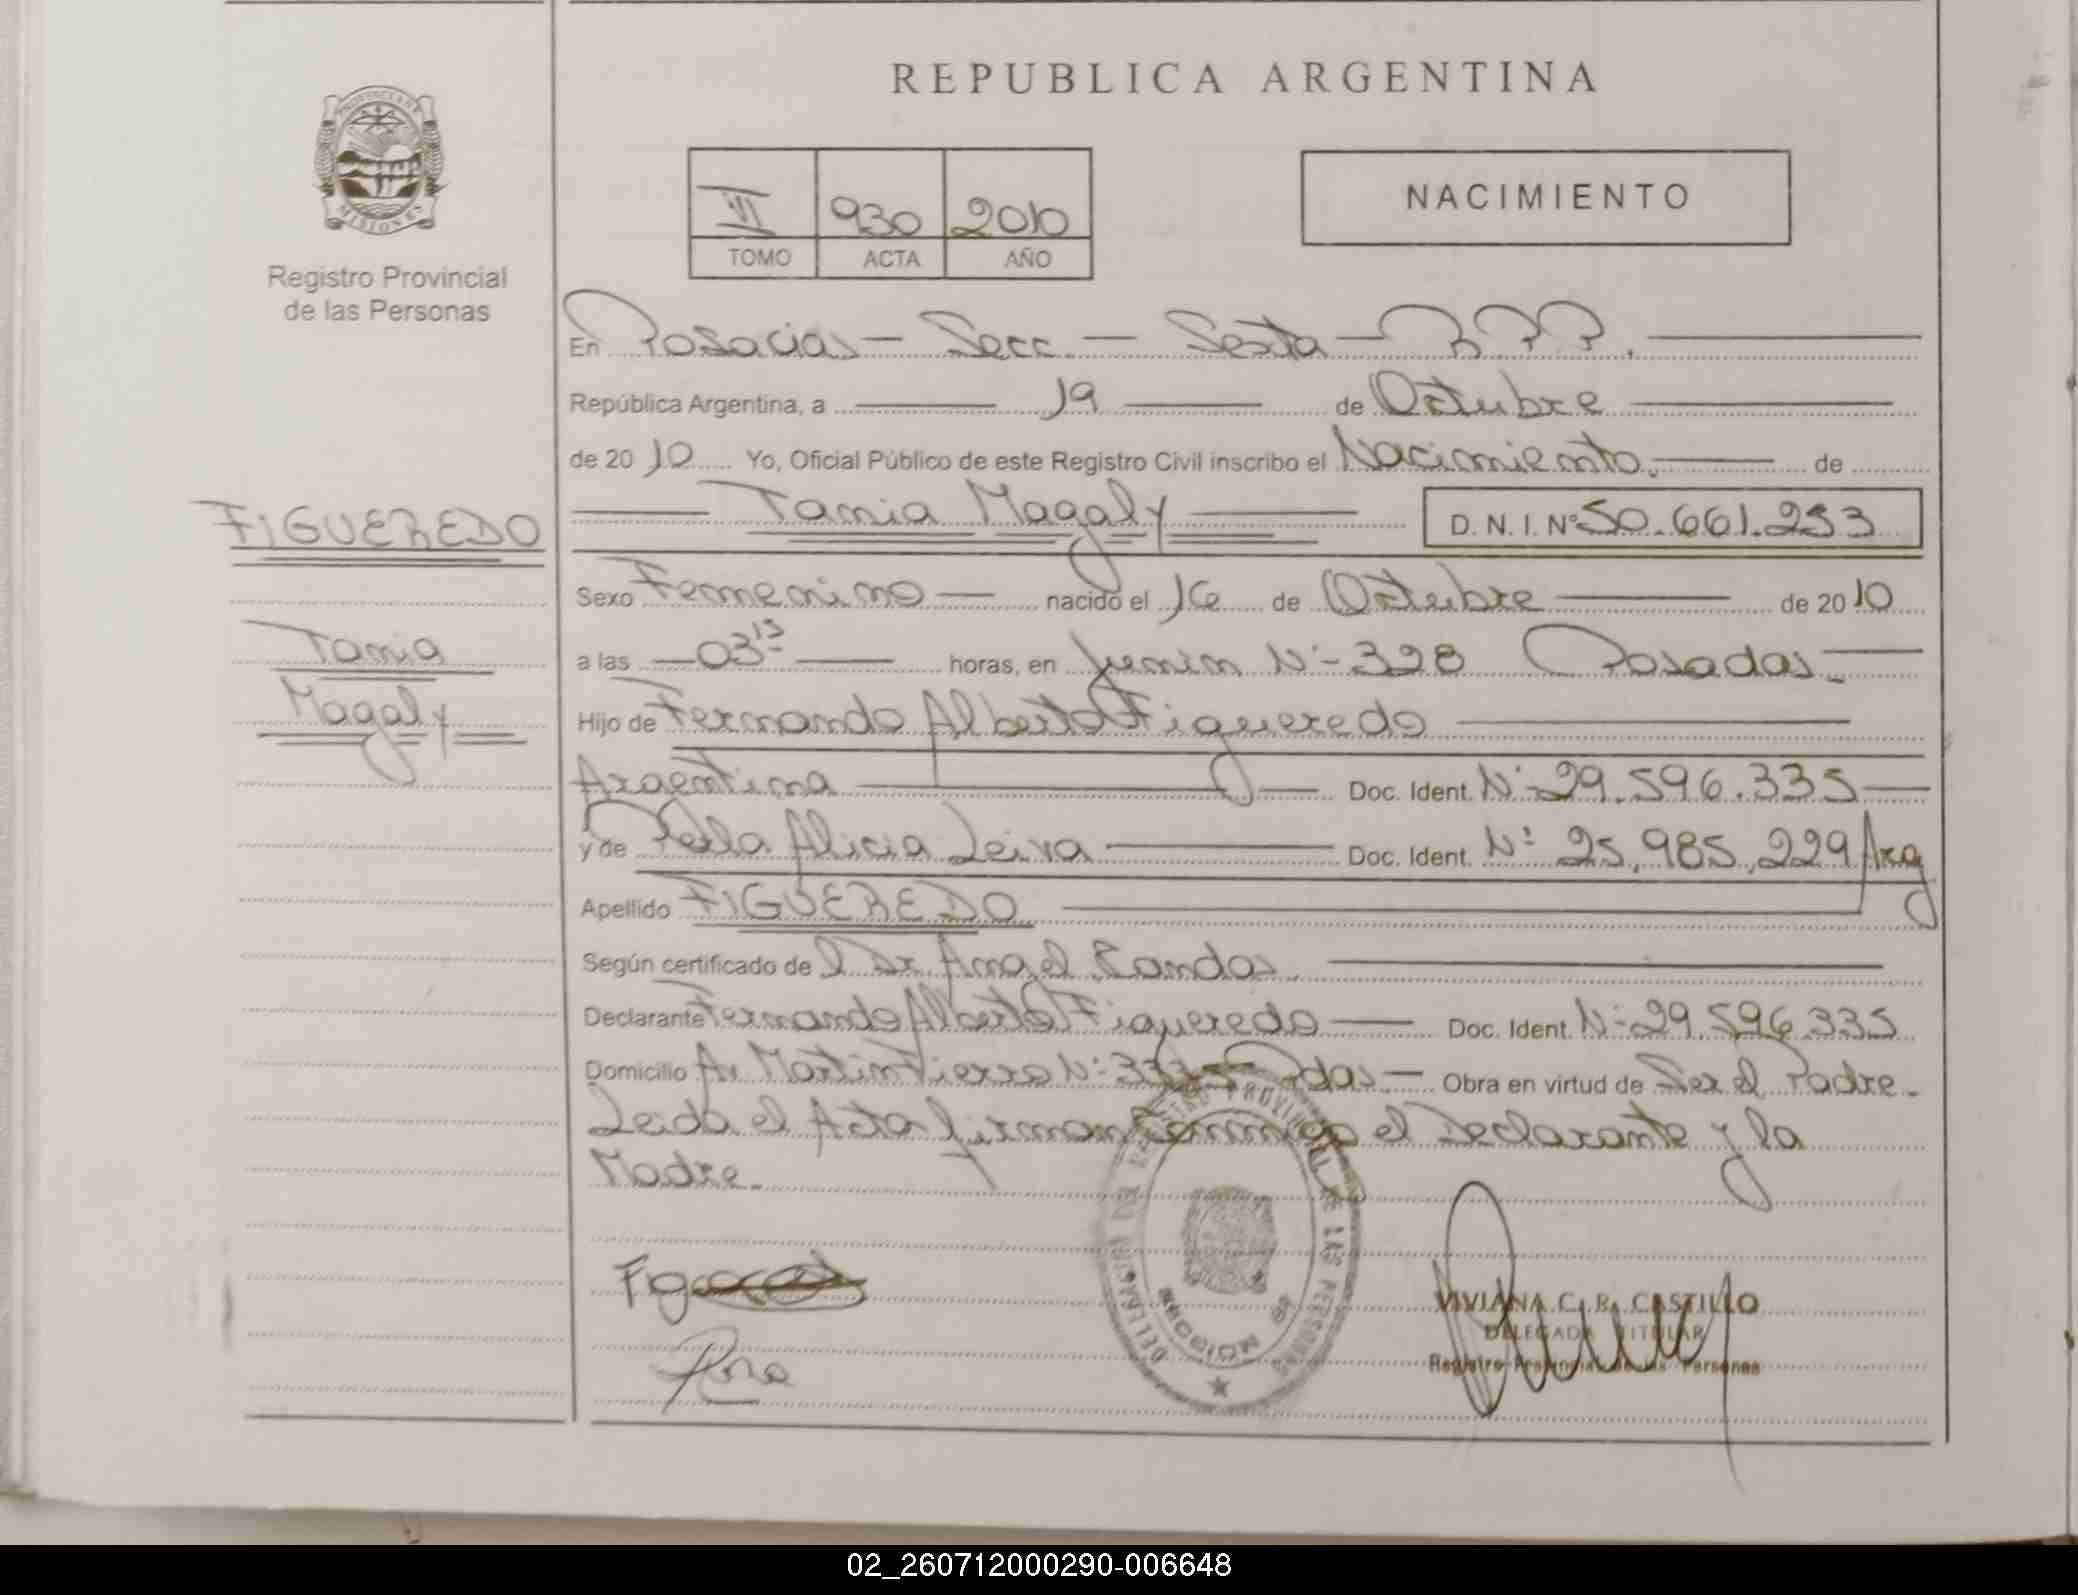 REPUBLICA ARGENTINA
PROVINCIA DE
MISIONES
Registro Provincial
de las Personas
VI 930 2010
TOMO ACTA AÑO
NACIMIENTO
En Posadas - Secc. - Sexta - R P P.
República Argentina, a 19 de Octubre
de 2010 Yo, Oficial Público de este Registro Civil inscribo el Nacimiento. de
FIGUEREDO
Tania Magaly D. N. I. Nº 50.661.253
Sexo Femenino nacido el 16 de Octubre de 2010
Tania
a las 03 15 horas, en Junin Nº 328 Posadas.
Magaly
Hijo de Fernando Alberto Figueredo
Argentina Doc. Ident. Nº 29.596.335
y de Perla Alicia Leiva Doc. Ident. Nº 25.985.229 Arg
Apellido FIGUEREDO
Según certificado de l Dr Angel
Declarante Fernando Alberto Figueredo Doc. Ident. Nº 29.596.335
Domicilio Av Martin Fierro Nº Pdas - Obra en virtud de Ser el Padre.
Leida el Acta firman conmigo el Declarante y la
Madre.
DELEGACION DEL REGISTRO PROVINCIAL DE LAS PERSONAS
SECCION 6ª
VIVIANA C. R. CASTILLO
DELEGADA TITULAR
Registro Provincial de las Personas
02_260712000290-006648